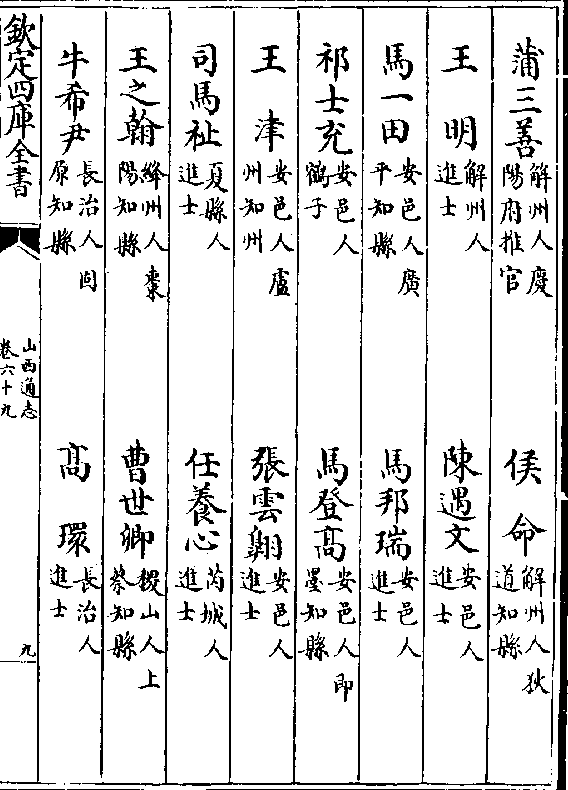 蒲三善解州人慶陽府推官
侯命解州人狄道知縣
王明解州人進士
陳遇文安邑人進士
馬一田安邑人廣平知縣
馬邦瑞安邑人進士
祁士充安邑人鶴子
馬登髙安邑人即墨知縣
王津安邑人盧州知州
張雲翔安邑人進士
司馬祉夏縣人進士
任養心芮城人進士
王之翰絳州人棗陽知縣
曹世卿稷山人上蔡知縣
牛希尹長治人固原知縣
髙環長治人進士
欽定四庫全書
山西通志
卷六十九
九